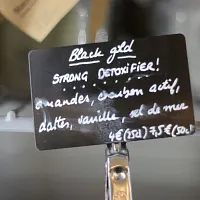 Black gold
STRONG DETOXIFIER!
amandes, charbon actif,
dattes, vanille, sel de mer
4€ (25cl) 7,5€ (50cl)